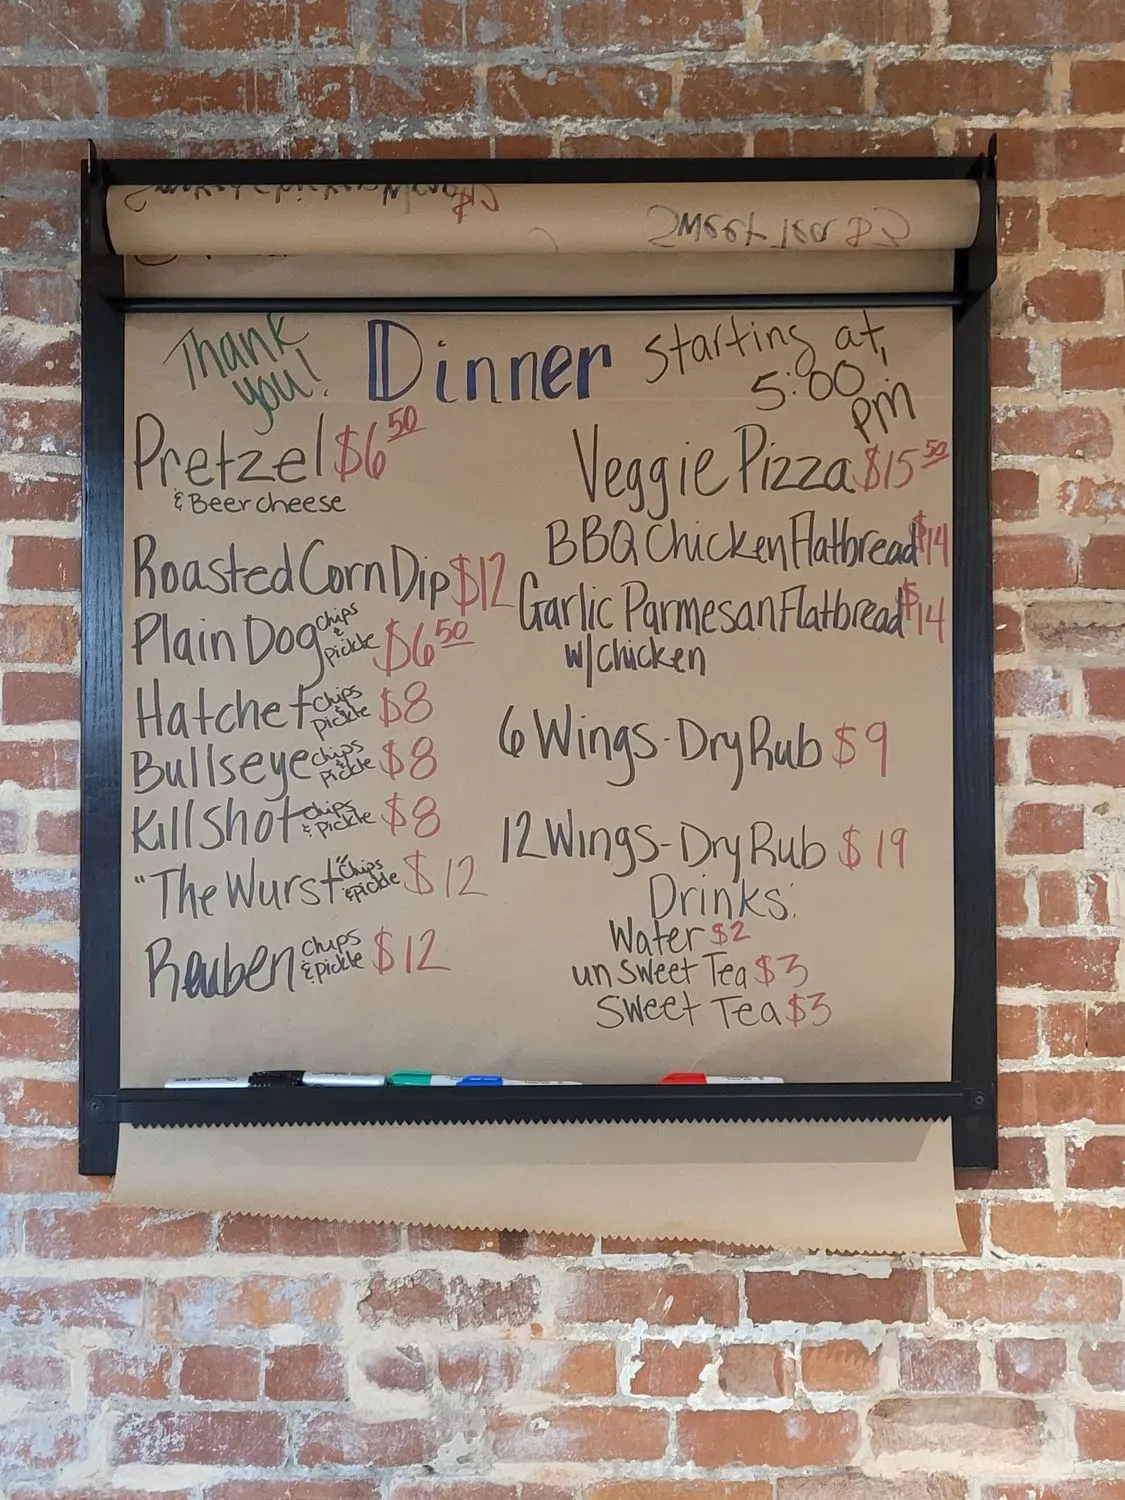 Sweet Tea $3
Thank you!
Dinner
starting at
5:00
pm
Pretzel $6.50
& Beer cheese
Roasted Corn Dip $12
Plain Dog chips & pickle $6.50
Hatchet chips & pickle $8
Bullseye chips & pickle $8
Killshot chips & pickle $8
"The Wurst" chips & pickle $12
Reuben chips & pickle $12
Veggie Pizza $15.50
BBQ Chicken Flatbread $14
Garlic Parmesan Flatbread $14
w/chicken
6 Wings - Dry Rub $9
12 Wings - Dry Rub $19
Drinks:
Water $2
unsweet Tea $3
Sweet Tea $3